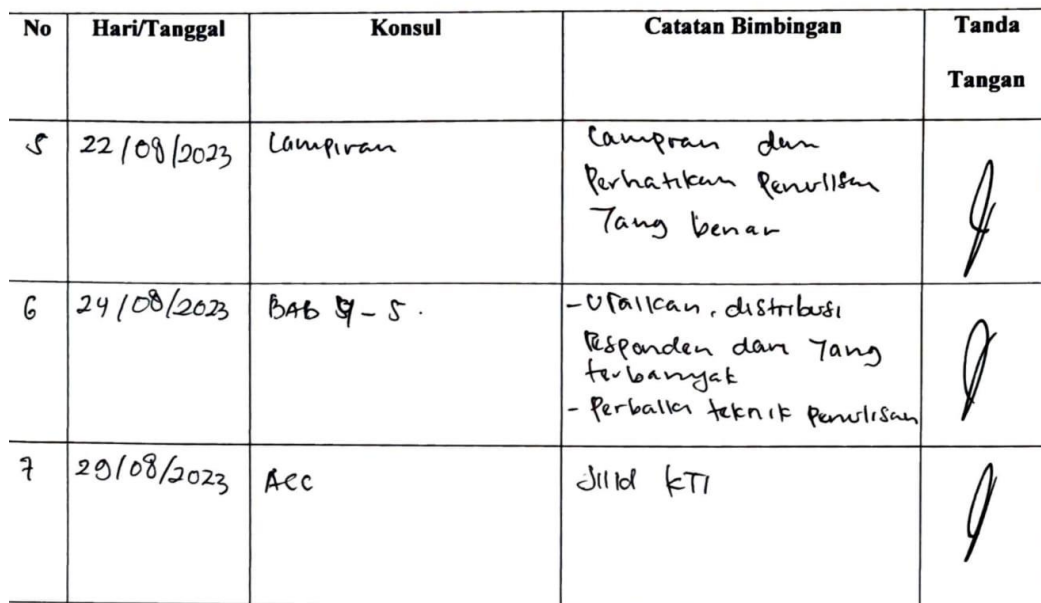 No Hari/Tanggal Konsul Catatan Bimbingan Tanda
Tangan
5 22/08/2023 Lampiran Lampran dan
Perhatikan Penulisan
Yang benar
6 24/08/2023 BAB 4-5. -Uraikan, distribusi
Responden dari Yang
terbanyak
- Perbaiki teknik penulisan
7 29/08/2023 Acc Jilid KTI